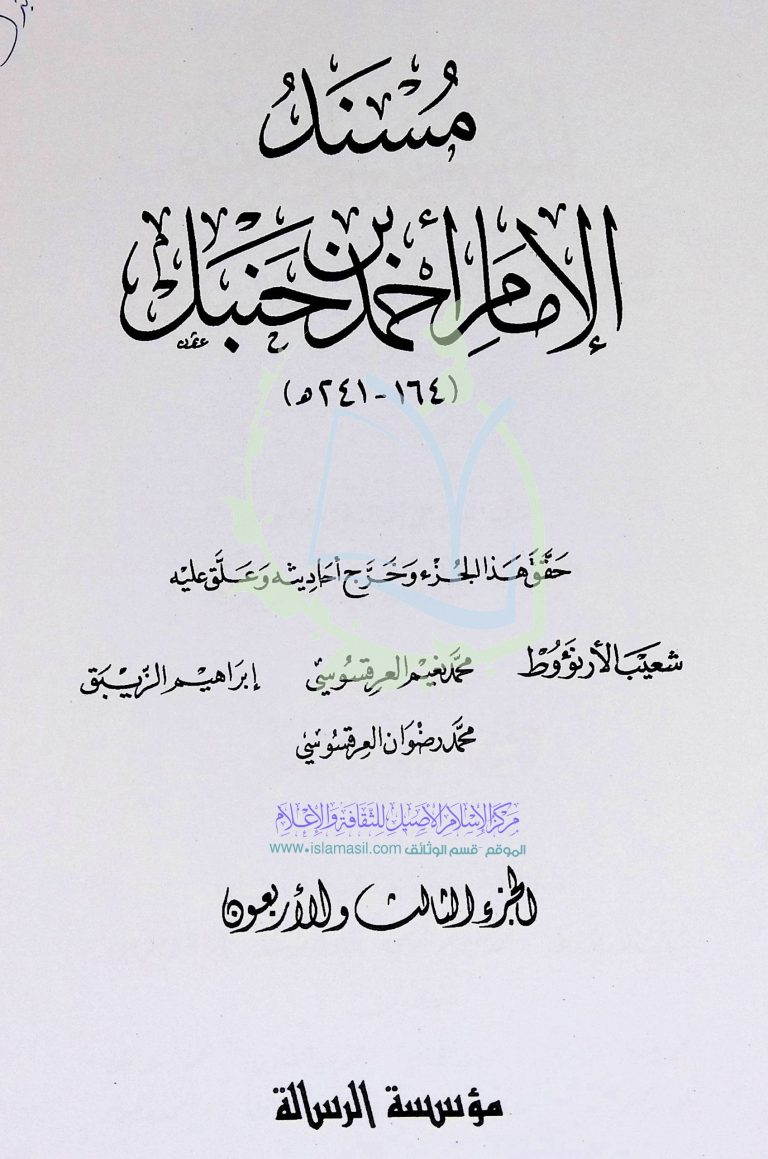 مُسْنَدُ
الإمَامِ أَحْمَد بْن حَنْبَل
(١٦٤ - ٢٤١ هـ)
حَقَّقَ هَذا الجُزْء وَخَرَّج أحَاديثه وَعَلَّق عَليه
شعَيب الأرنؤوط محمّد نعيم العرقسُوسي إبراهيم الزّيبَق
محمَّد رضْوان العرقسُوسي
مركز الإسلام الأصيل للثقافة والإعلام
الموقع - قسم الوثائق www.islamasil.com
الجزء الثالث والأربعون
مؤسسة الرسالة